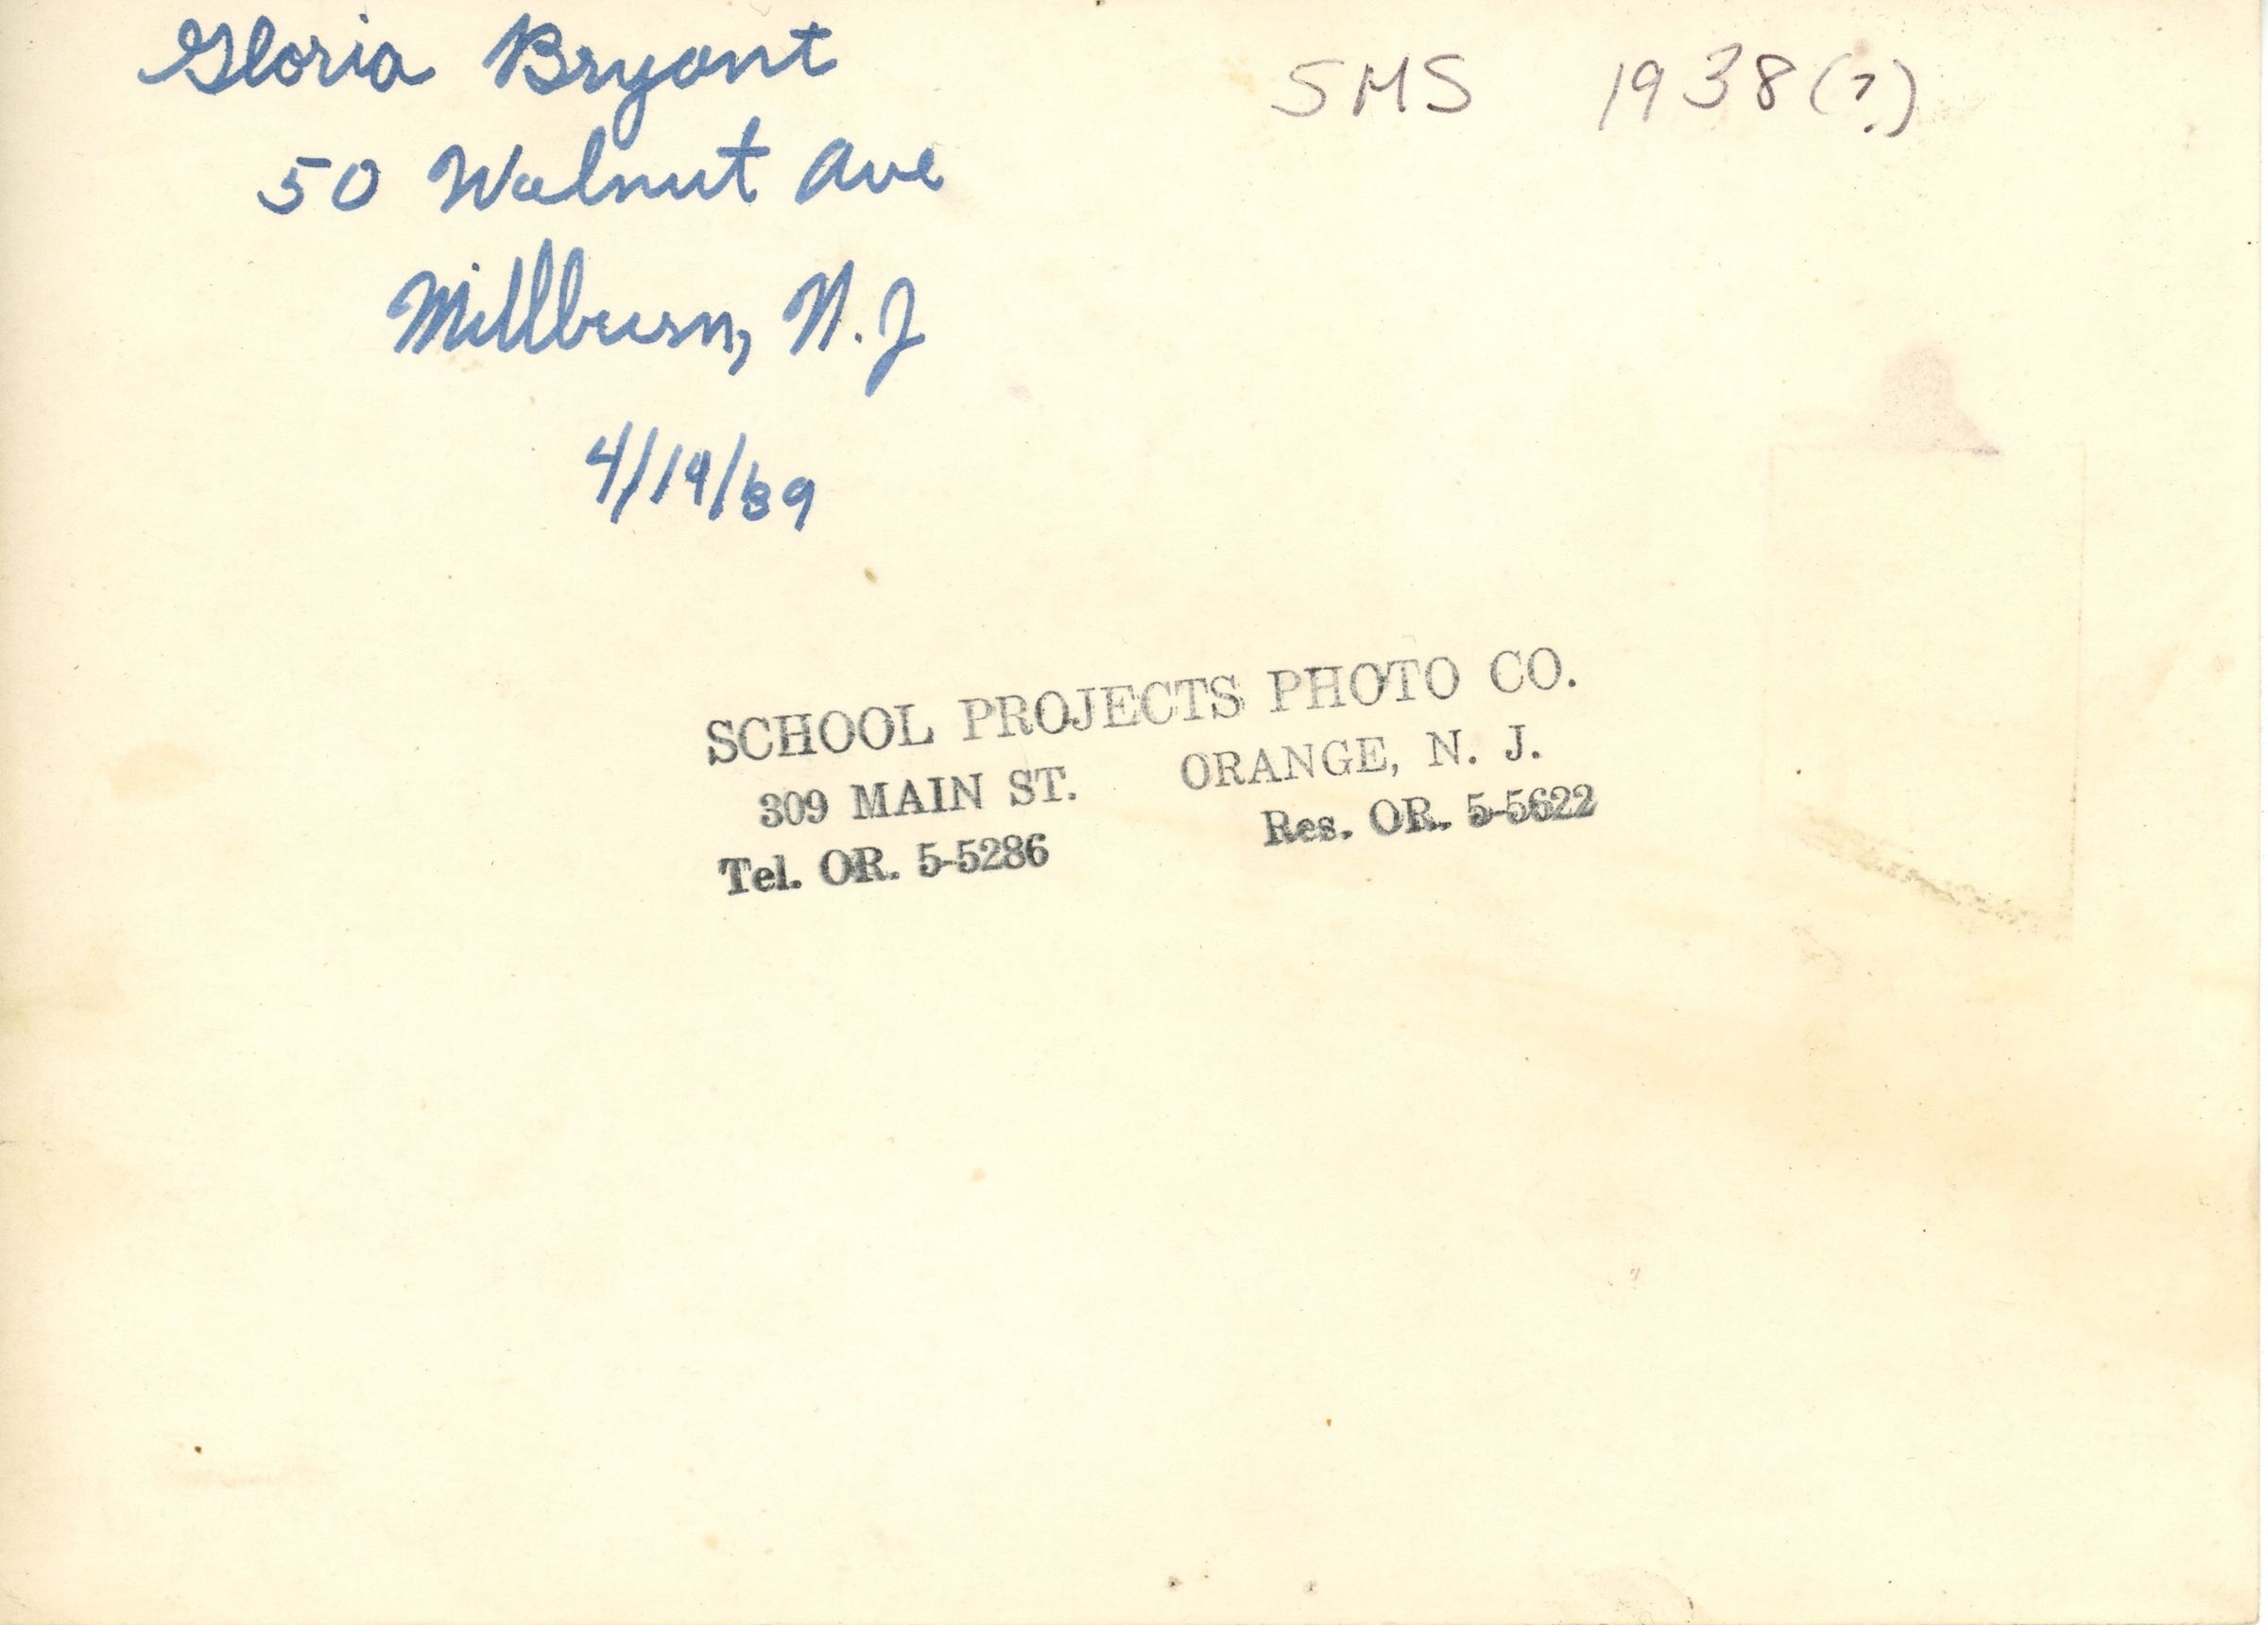 Gloria Bryant
SMS 1938(?)
50 Walnut Ave
Millburn, N.J
4/19/89
SCHOOL PROJECTS PHOTO CO.
309 MAIN ST. ORANGE, N. J.
Tel. OR. 5-5286 Res. OR. 5-5622